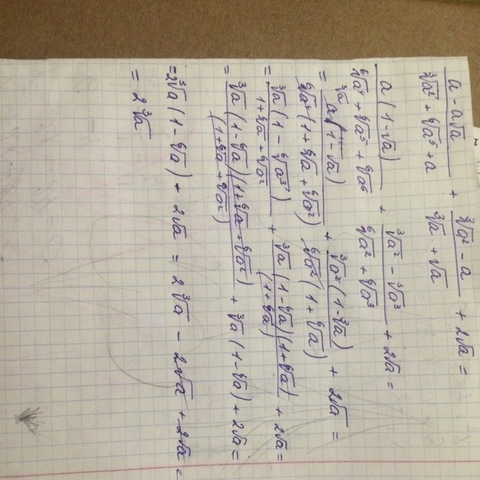 (a - a√a)/(∛a² + ⁶√a⁵ + a) + (∛a² - a)/(∛a + √a) + 2√a =
a(1-√a)/(⁶√a⁴ + ⁶√a⁵ + ⁶√a⁶) + (∛a² - ∛a³)/(⁶√a² + ⁶√a³) + 2√a =
= ∛a(1-√a)/(1+⁶√a+⁶√a²) + ∛a²(1-∛a)/(⁶√a²(1+⁶√a)) + 2√a =
= ∛a(1-⁶√a³)/(1+⁶√a+⁶√a²) + ∛a(1-⁶√a)(1+⁶√a)/(1+⁶√a) + 2√a =
= ∛a(1-⁶√a)(1+⁶√a+⁶√a²)/(1+⁶√a+⁶√a²) + ∛a(1-⁶√a) + 2√a =
= 2∛a(1-⁶√a) + 2√a = 2∛a - 2√a + 2√a =
= 2∛a